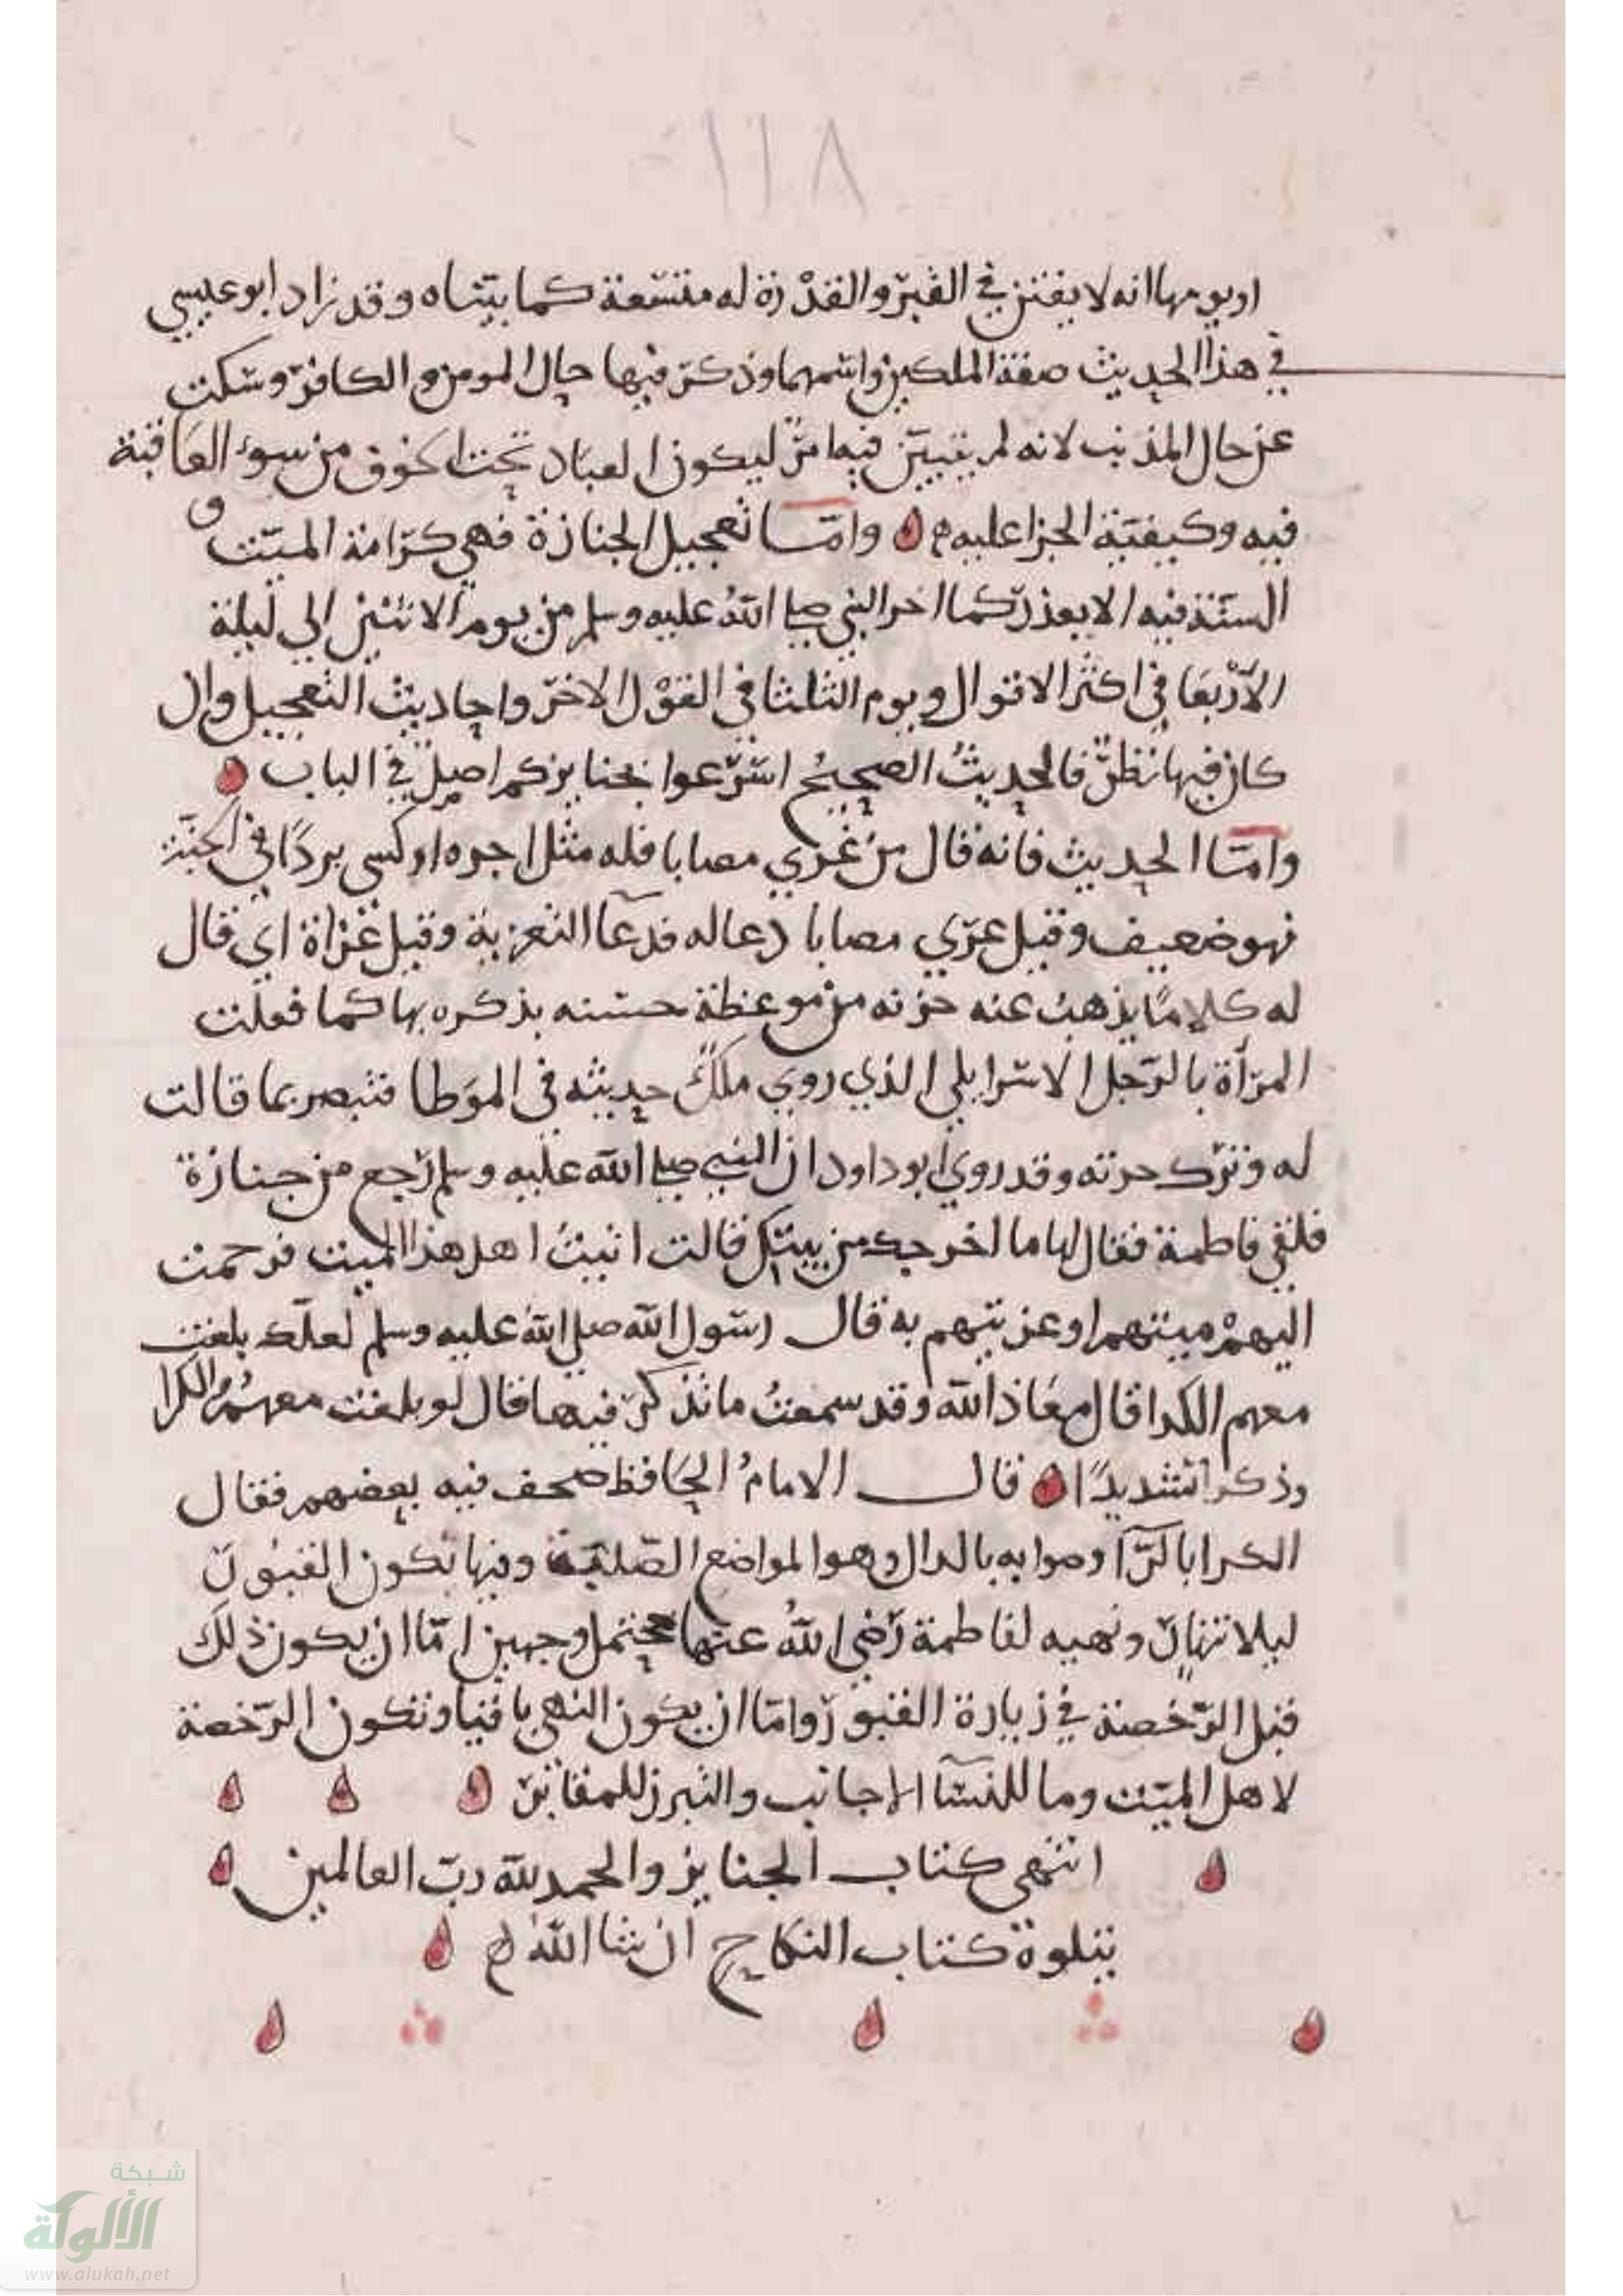 ١١٨
او يومها انه لا يفتن في القبر والقدرة له متسعة كما بيناه وقد زاد ابو عيسي
في هذا الحديث صفة الملكين واسمهما وذكر فيها حال المومن والكافر وسكت
عن حال المذنب لانه لم يتبين فيها من ليكون العباد تحت الخوف من سوء العاقبة
فيه وكيفية الجزا عليه واما تعجيل الجنازة فهي كرامة الميت و
السنة فيه الا بعذر كما اخر النبي صلى الله عليه وسلم من يوم الاثنين الي ليلة
الاربعا في اكثر الاقوال ويوم الثلثا في القول الاخر واحاديث التعجيل وان
كان فيها نظر فالحديث الصحيح اسرعوا بجنايزكم اصل في الباب
واما الحديث فانه قال من عزي مصابا فله مثل اجره او كسي بردا في الجنة
فهو ضعيف وقيل عزي مصابا دعا له فدعا التعزية وقيل عزاة اي قال
له كلاما يذهب عنه حزنه من موعظة حسنه يذكره بها كما فعلت
المرأة بالرجل الاسرايلي الذي روي ملك حديثه في الموطا فتبصر بما قالت
له وترك حزنه وقد روي ابو داود ان النبي صلى الله عليه وسلم رجع من جنازة
فلقي فاطمة فقال لها ما اخرجك من بيتك قالت اتيت اهل هذا الميت فرحمت
اليهم ميتهم او عزيتهم به قال رسول الله صلي الله عليه وسلم لعلك بلغت
معهم الكدا قال معاذ الله وقد سمعت ما تذكر فيها قال لو بلغت معهم الكدا
وذكر تشديدا قال الامام الحافظ صحف فيه بعضهم فقال
الكرا بالرآ وصوابه بالدال وهو المواضع الصلبة وفيها تكون القبور
ليلا تنهار ونهيه لفاطمة رضي الله عنها محتمل وجهين اما ان يكون ذلك
قبل الرخصة في زيارة القبور واما ان يكون النهي باقيا وتكون الرخصة
لاهل الميت وما للنسآ الاجانب والتبرز للمقابر
انتهى كتاب الجنايز والحمد لله رب العالمين
يتلوة كتاب النكاح ان شا الله
شبكة
الألوكة
www.alukah.net